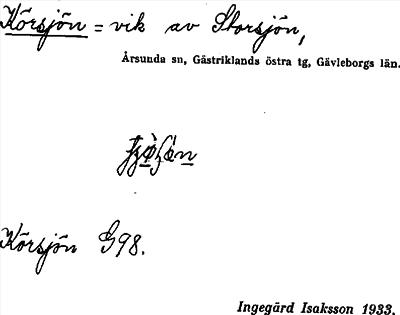 Körsjön = vik av Storsjön,
Årsunda sn, Gästriklands östra tg, Gävleborgs län.
Körsjön G98.
Ingegärd Isaksson 1933.